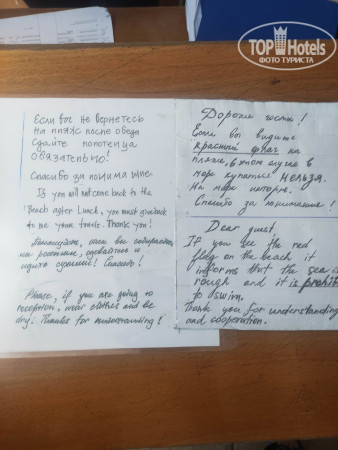 TOP Hotels
ФОТО ТУРИСТА
Если вы не вернетесь
на пляж после обеда
Сдайте полотенца
обязательно!
Спасибо за понимание.
If you will not come back to the
Beach after Lunch, you must give back
to me your towels. Thank you!
Пожалуйста, если вы собираетесь
на ресепшн, одевайтесь и
идите сухими! Спасибо!
Please, if you are going to
reception, wear clothes and be
dry. Thanks for understanding!
Дорогие гости!
Если вы видите
красный флаг на
пляже, в этом случае в
море купаться нельзя.
На море шторм.
Спасибо за понимание!
Dear guest.
If you see the red
flag on the beach it
informs that the sea is
rough and it is prohib
to swim.
Thank you for understanding
and cooperation.